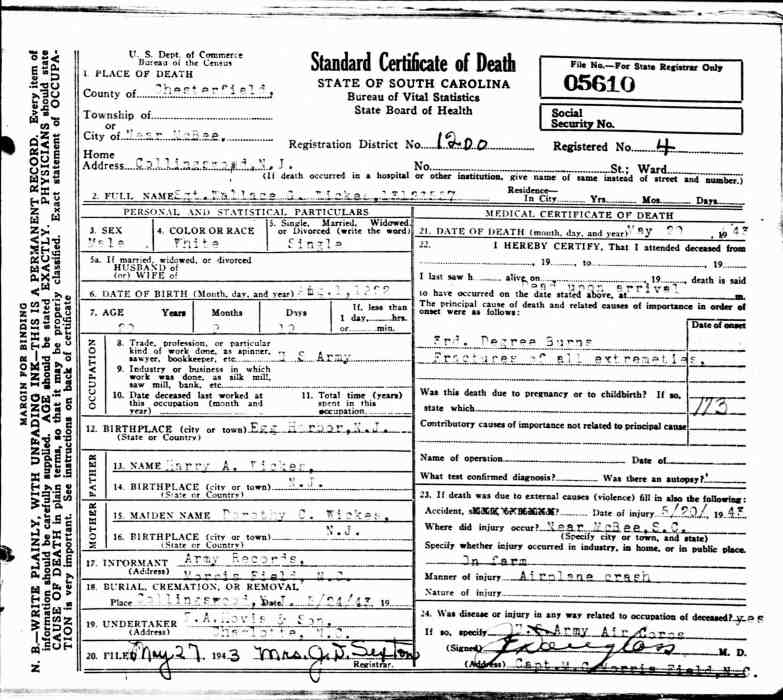 U. S. Dept. of Commerce
Bureau of the Census
Standard Certificate of Death
STATE OF SOUTH CAROLINA
Bureau of Vital Statistics
State Board of Health
File No.—For State Registrar Only
05610
Social
Security No.
1. PLACE OF DEATH
County of Chesterfield,
Township of
or
City of Near McBee,
Registration District No. 1200
Registered No. 4
Home
Address Collingswood, N.J. No. St.; Ward
(If death occurred in a hospital or other institution, give name of same instead of street and number.)
2. FULL NAME Sgt. Wallace G. Wickes, Residence—In City Yrs. Mos. Days
PERSONAL AND STATISTICAL PARTICULARS
3. SEX
Male
4. COLOR OR RACE
White
5. Single, Married, Widowed, or Divorced (write the word)
Single
5a. If married, widowed, or divorced
HUSBAND of
(or) WIFE of
6. DATE OF BIRTH (Month, day, and year)
7. AGE Years Months Days If less than
1 day, hrs.
or min.
OCCUPATION
8. Trade, profession, or particular
kind of work done, as spinner,
sawyer, bookkeeper, etc. U S Army
9. Industry or business in which
work was done, as silk mill,
saw mill, bank, etc.
10. Date deceased last worked at
this occupation (month and
year)
11. Total time (years)
spent in this
occupation
12. BIRTHPLACE (city or town) Egg Harbor, N.J.
(State or Country)
FATHER
13. NAME Harry A. Wickes,
14. BIRTHPLACE (city or town) N.J.
(State or Country)
MOTHER
15. MAIDEN NAME Dorothy C. Wickes,
16. BIRTHPLACE (city or town) N.J.
(State or Country)
17. INFORMANT Army Records,
(Address) Morris Field, N.C.
18. BURIAL, CREMATION, OR REMOVAL
Place Collingswood, Date 5/24/43 19
19. UNDERTAKER & Son,
(Address) Charlotte, N.C.
20. FILED May 27, 1943 Mrs. J. D. Sexton
Registrar.
MEDICAL CERTIFICATE OF DEATH
21. DATE OF DEATH (month, day, and year) May 20, 1943
22. I HEREBY CERTIFY, That I attended deceased from
, 19 , to , 19
I last saw h alive on , 19 , death is said
Dead upon arrival
to have occurred on the date stated above, at m.
The principal cause of death and related causes of importance in order of
onset were as follows:
Date of onset
3rd. Degree Burns
Fractures of all extremeties,
Was this death due to pregnancy or to childbirth? If so,
state which 173
Contributory causes of importance not related to principal cause
Name of operation Date of
What test confirmed diagnosis? Was there an autopsy?
23. If death was due to external causes (violence) fill in also the following:
Accident, Date of injury 5/20/ 1943
Where did injury occur? Near McBee, S.C.
(Specify city or town, and state)
Specify whether injury occurred in industry, in home, or in public place.
On farm
Manner of injury Airplane crash
Nature of injury
24. Was disease or injury in any way related to occupation of deceased? yes
If so, specify U.S Army Air Corps
(Signed) M. D.
(Address) Capt. M.C. Morris Field, N.C.
MARGIN FOR BINDING
N. B.—WRITE PLAINLY, WITH UNFADING INK—THIS IS A PERMANENT RECORD. Every item of
information should be carefully supplied. AGE should be stated EXACTLY. PHYSICIANS should state
CAUSE OF DEATH in plain terms, so that it may be properly classified. Exact statement of OCCUPA-
TION is very important. See instructions on back of certificate